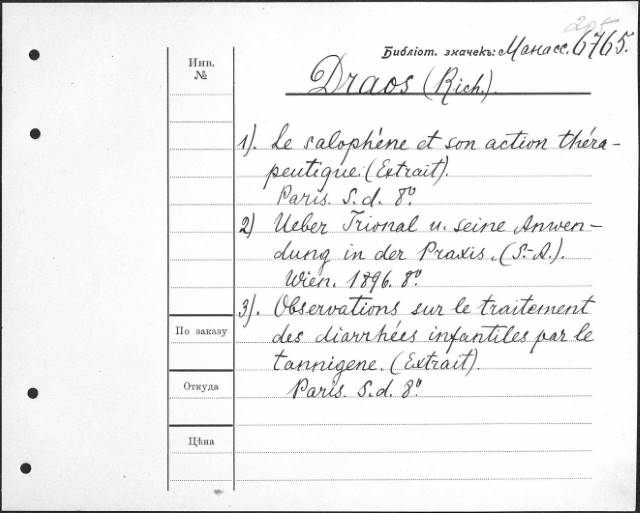 205
Библіот. значекъ: Манасс. 6765.
Инв.
№
Draos (Rich.).
1). Le salophène et son action théra-
peutique. (Extrait).
Paris. S.d. 8º.
2) Ueber Trional u. seine Anwen-
dung in der Praxis. (S.-A.).
Wien. 1896. 8º.
3). Observations sur le traitement
des diarrhées infantiles par le
tannigene. (Extrait).
Paris. S.d. 8º.
По заказу
Откуда
Цѣна